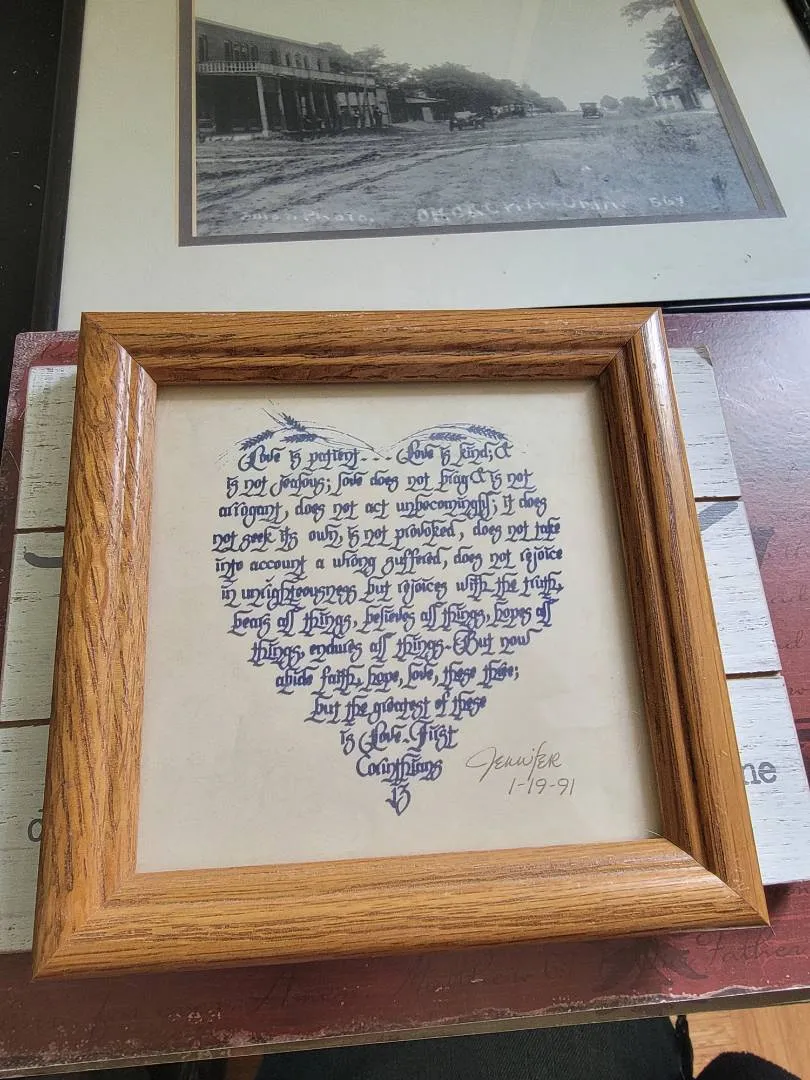 Photo.
Love is patient... Love is kind; &
is not jealous; love does not brag & is not
arrogant, does not act unbecomingly; it does
not seek its own, is not provoked, does not take
into account a wrong suffered, does not rejoice
in unrighteousness but rejoices with the truth,
bears all things, believes all things, hopes all
things, endures all things. But now
abide faith, hope, love, these three;
but the greatest of these
is Love. First
Corinthians
13
Jennifer
1-19-91
me
Father